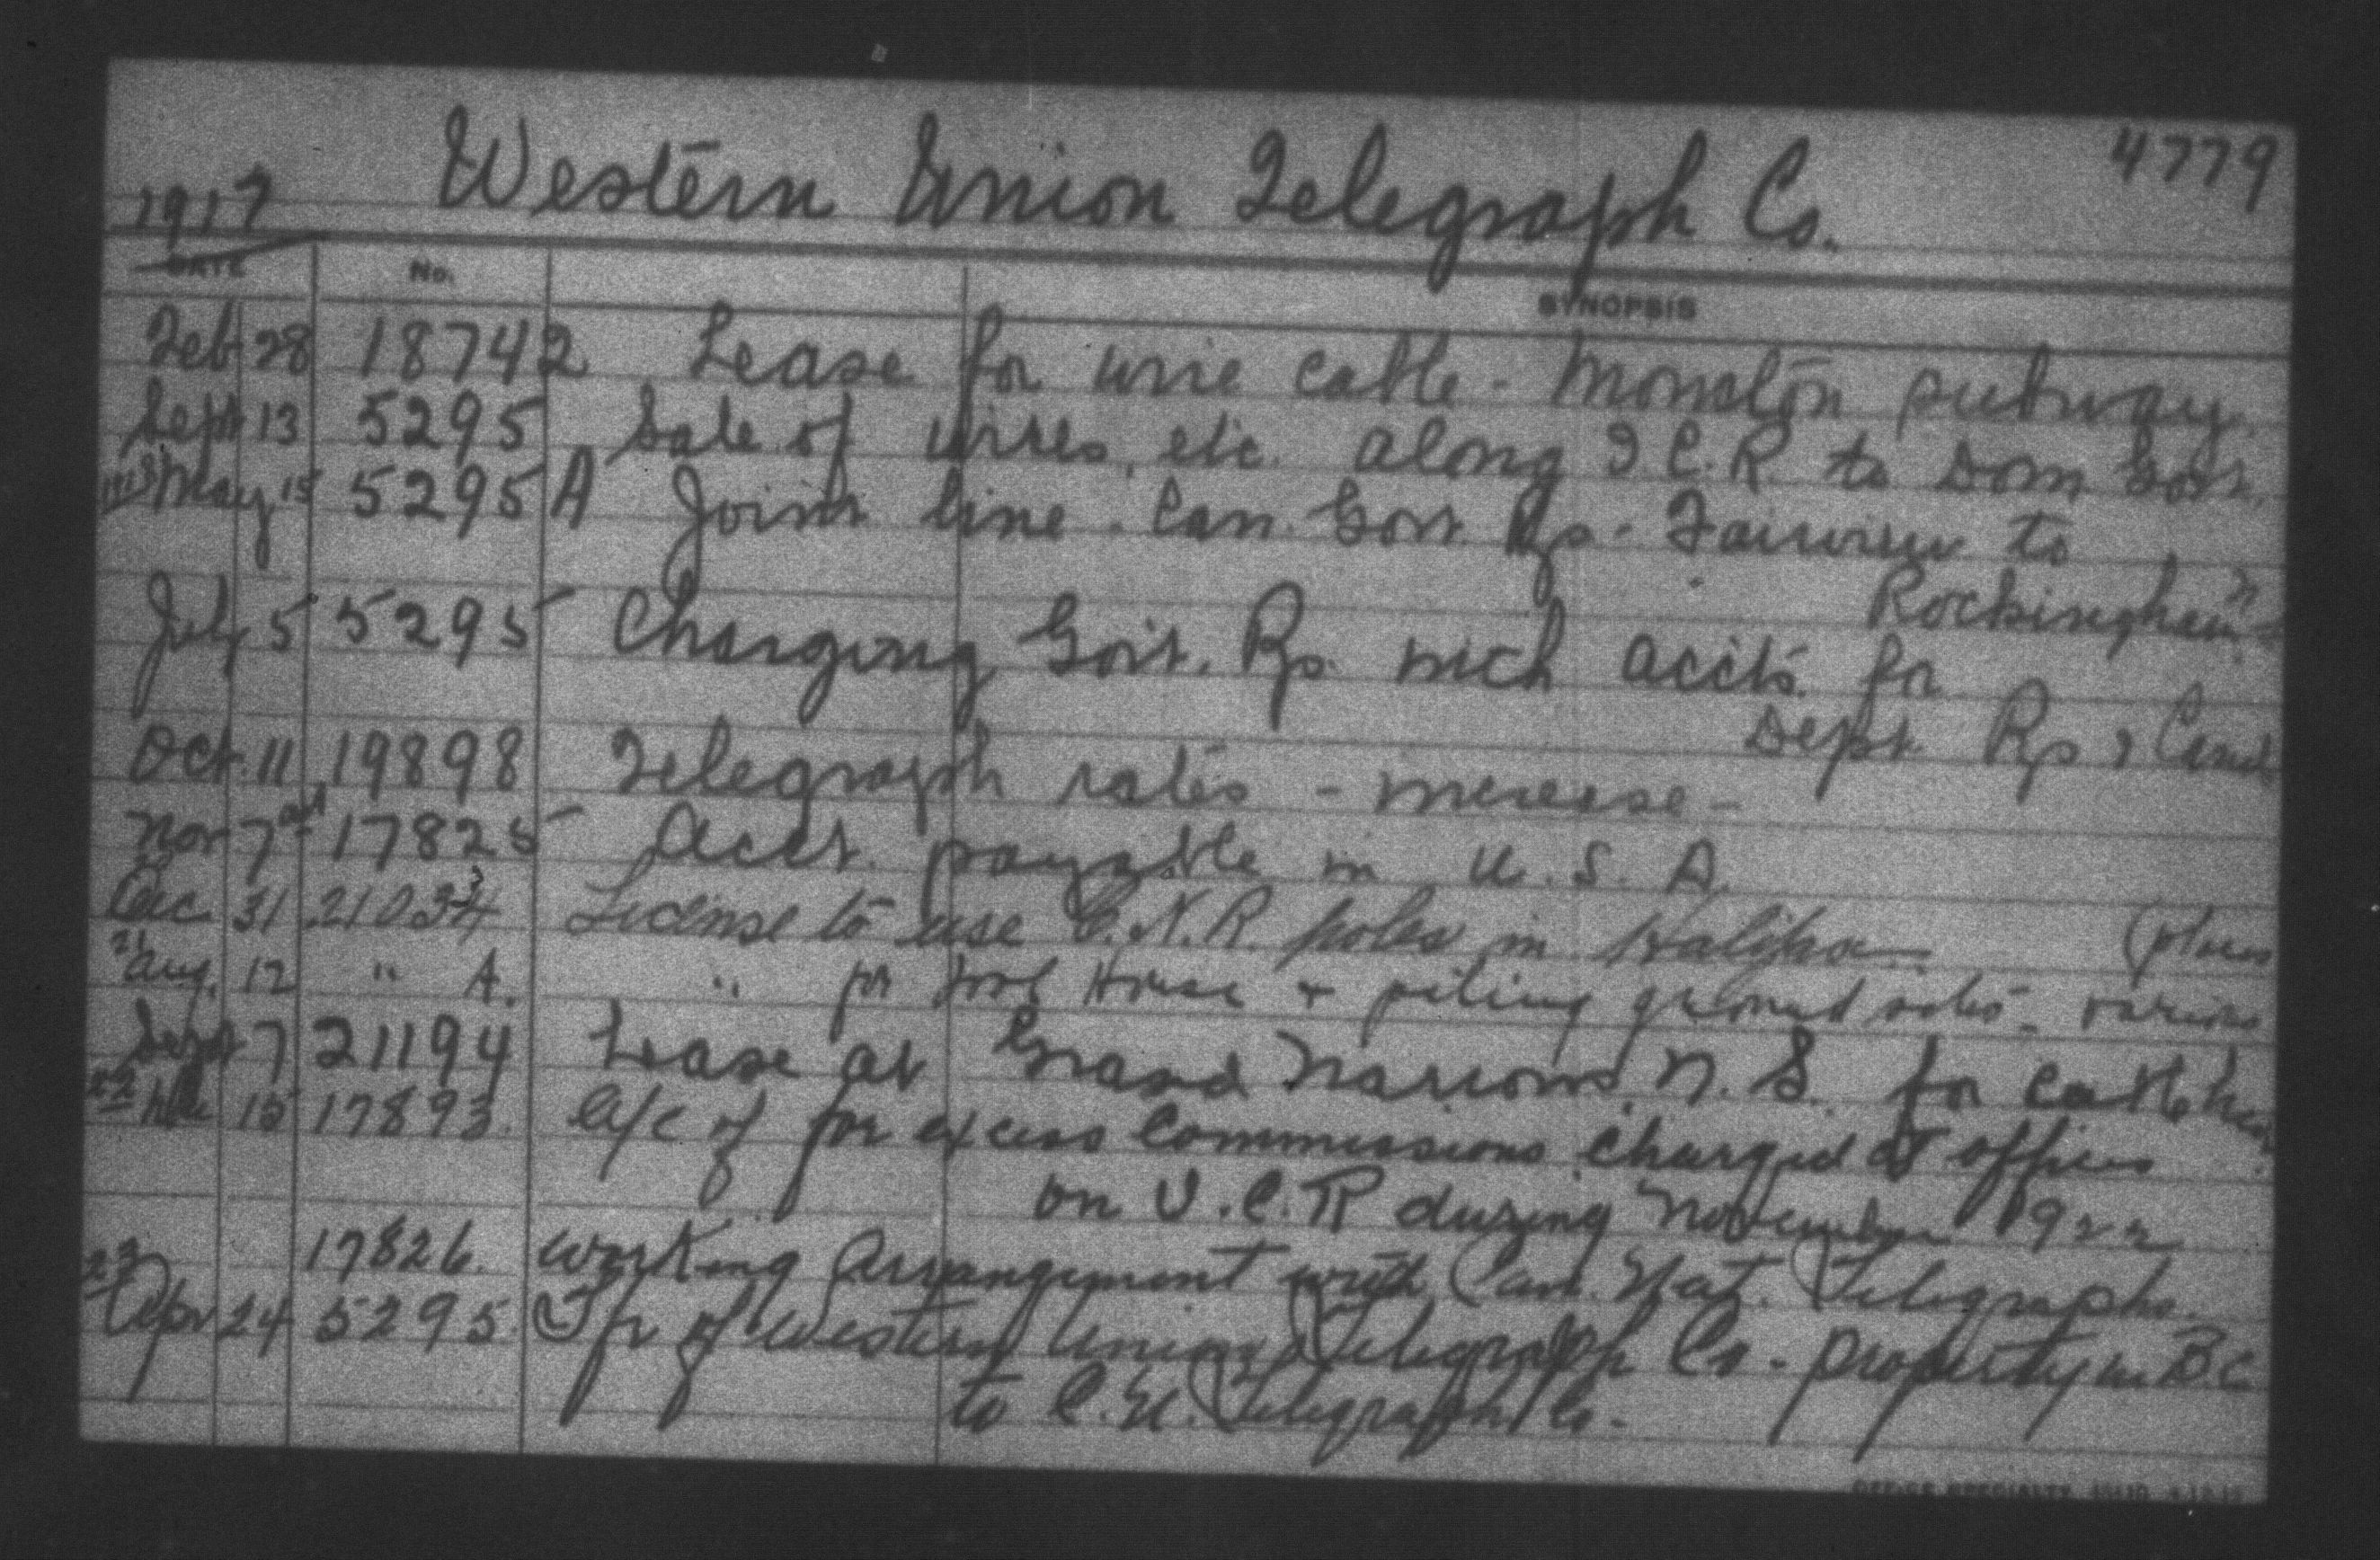 4779
1917 Western Union Telegraph Co.
DATE No. SYNOPSIS
Feb 28 18742 Lease for wire cable - Moncton subway.
Sept 13 5295 Sale of wires, etc. along I.C.R. to Dom Govt.
1918 May 15 5295 A Joint line. Can. Govt. Rys - Fairview to
Rockingham
July 5 5295 Charging Govt. Rys. with accts. for
Dept. Rys & Canals
Oct. 11 19898 Telegraph rates - increase -
Nov 7 17825 Acct. payable in U.S.A.
20 Dec 31 21034 License to use C.N.R. poles in Halifax
21 Aug. 12 " A. " for Tool House & piling ground sites - various
(places
Sept 7 21194 Lease at Grand Narrows, N.S. for cable house
22 Dec 15 17893. A/c of for excess Commissions charged at offices
on I.C.R during November 1922
17826. Working Arrangement with Can. Nat. Telegraphs.
23 Apr 24 5295. Tfr of Western Union Telegraph Co - property in B C
to C.N. Telegraph Co.
OFFICE SPECIALTY